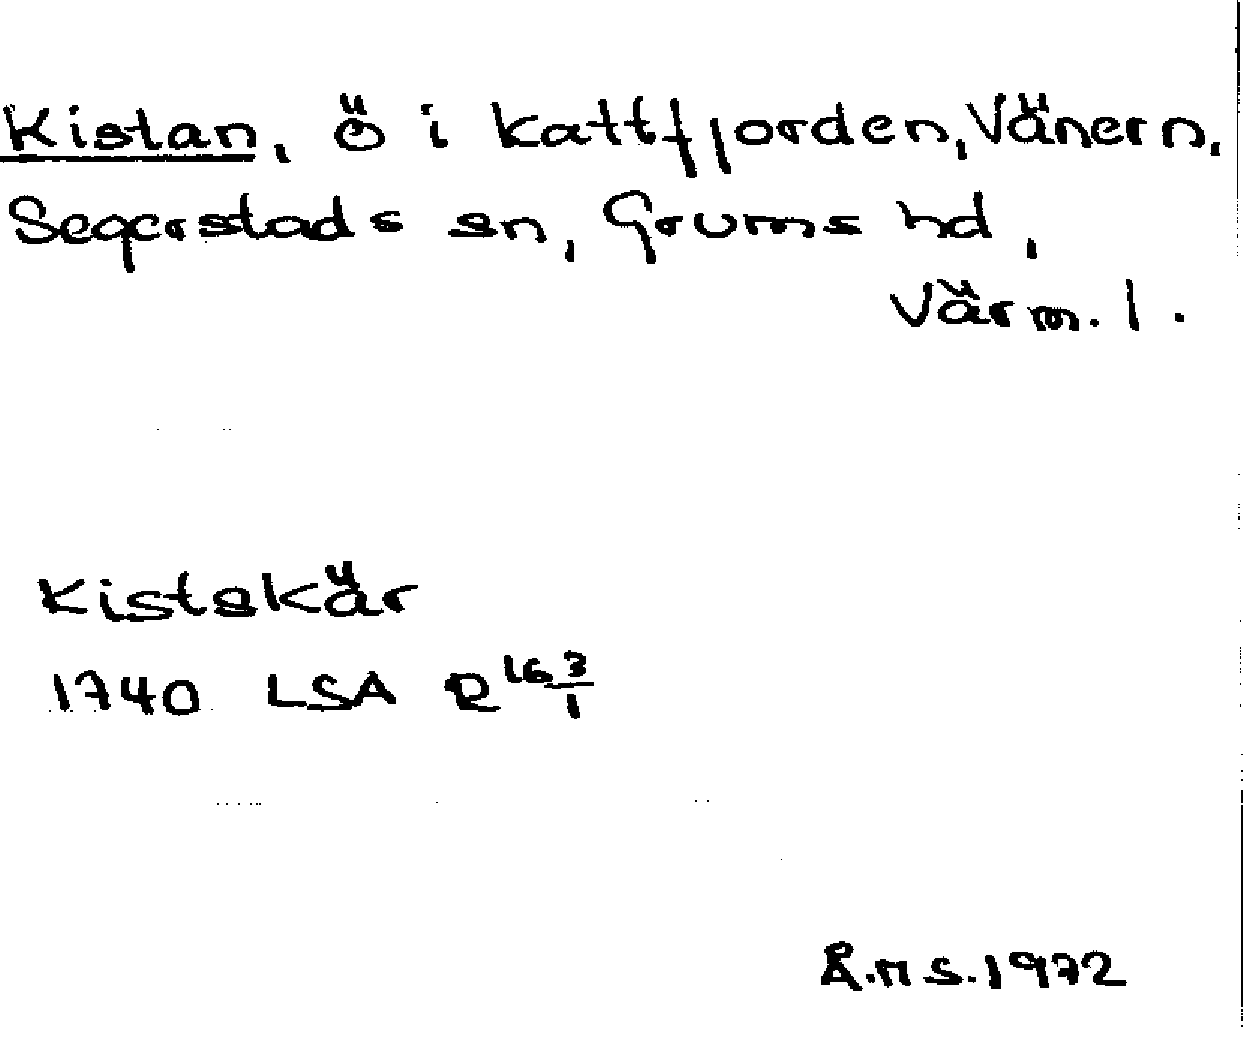 Kistan, ö i Kattfjorden, Vänern,
Segerstads sn, Grums hd,
Värm. l.
Kistskär
1740 LSA R 16 3/1
Å.M S. 1972